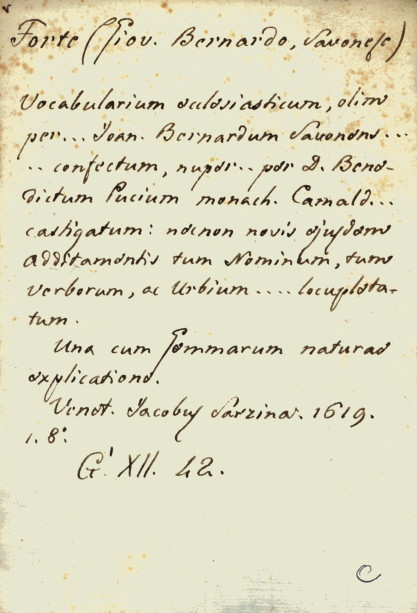 Forte (Giov. Bernardo, Savonese)
Vocabularium eclesiasticum, olim
per... Joan. Bernardum Savonens...
.. confectum, nuper.. per D. Bene-
dictum Pucium monach. Camald...
castigatum: necnon novis ejusdem
additamentis tum Nominum, tum
verborum, ac Urbium .... locupleta-
tum.
Una cum Gemmarum naturae
explicatione.
Venet. Jacobus Sarzina. 1619.
1. 8.°
G.' XII. 42.
C